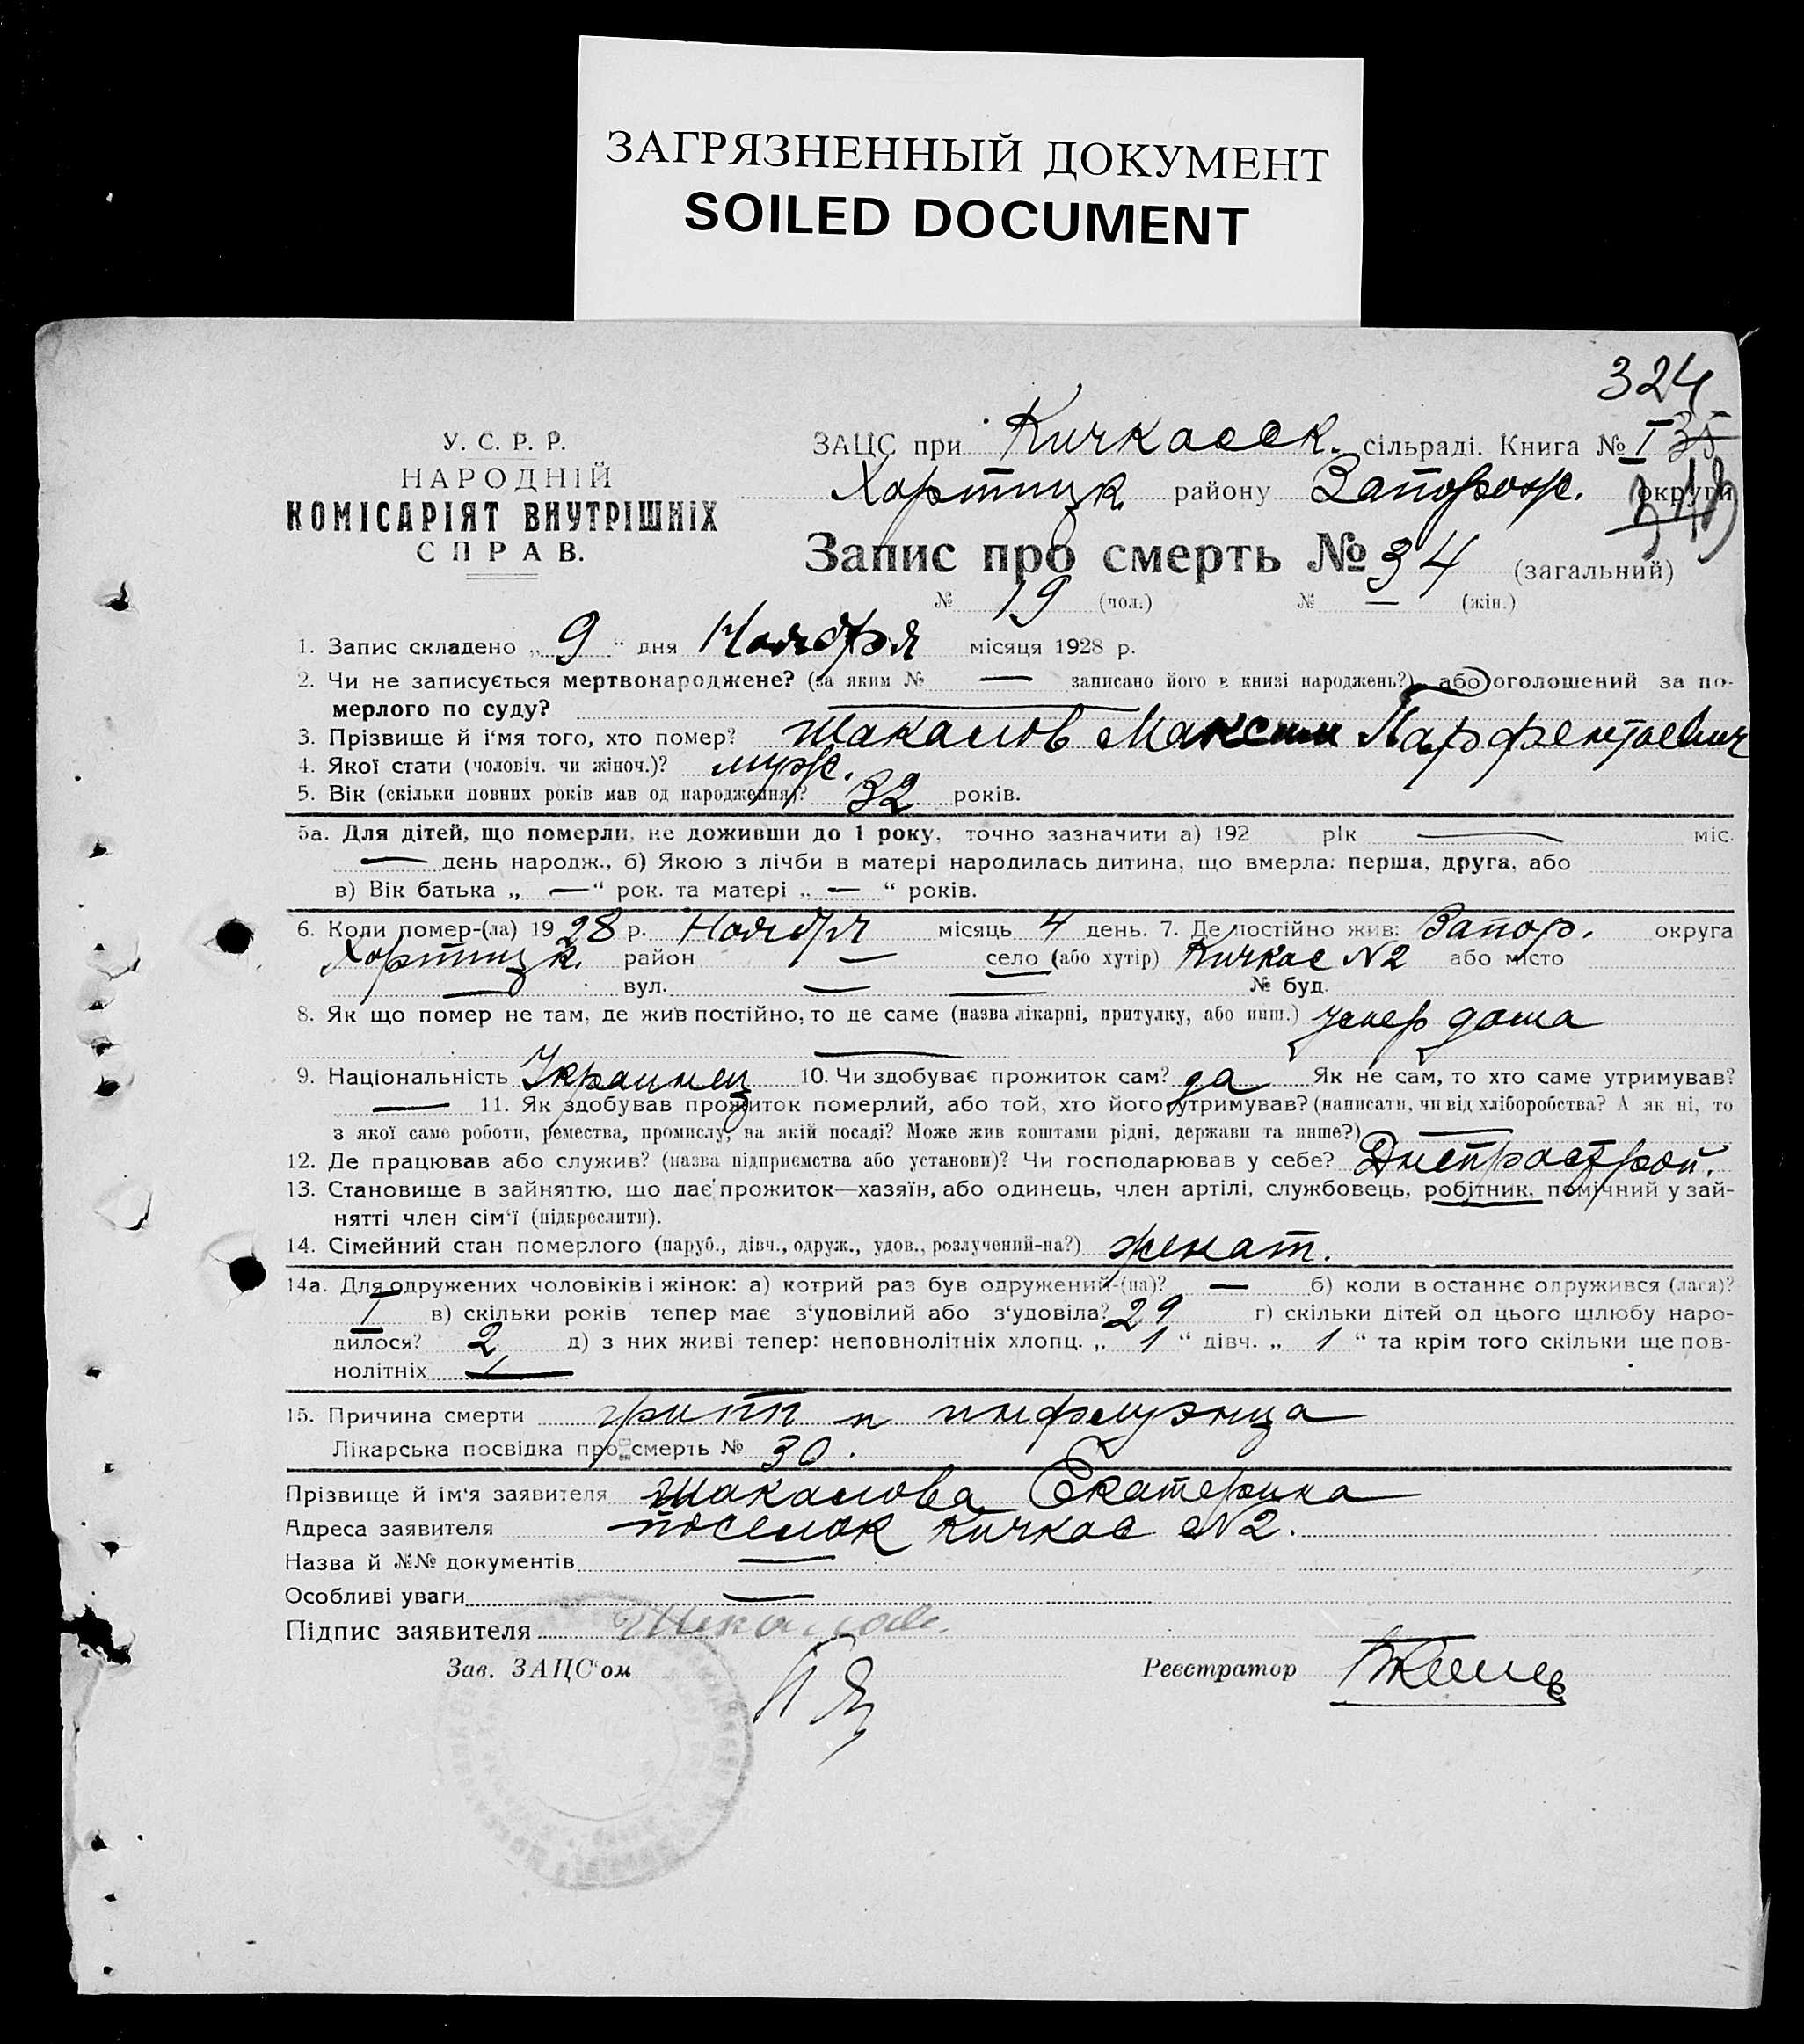 ЗАГРЯЗНЕННЫЙ ДОКУМЕНТ
SOILED DOCUMENT
324
У. С. Р. Р.
НАРОДНІЙ
КОМІСАРІЯТ ВНУТРІШНІХ
СПРАВ.
ЗАЦС при Кичкасск. сільраді. Книга № I 35
Хортицк району Запорож. округи
Запис про смерть № 34 (загальний)
№ 19 (чол.) № — (жін.)
1. Запис складено „ 9 “ дня Ноября місяця 1928 р.
2. Чи не записується мертвонароджене? (за яким № — записано його в книзі народжень?) або оголошений за по-
мерлого по суду? —
3. Прізвище й і'мя того, хто помер? Шакалов Максим Парфентьевич
4. Якої стати (чоловіч. чи жіноч.)? муж.
5. Вік (скільки повних років мав од народження)? 32 років.
5а. Для дітей, що померли, не доживши до 1 року, точно зазначити а) 192 рік — міс.
— день народж., б) Якою з лічби в матері народилась дитина, що вмерла: перша, друга, або
в) Вік батька „ — “ рок. та матері „ — “ років.
6. Коли помер-(ла) 1928 р. Ноября місяць 4 день. 7. Де постійно жив: Запор. округа
Хортицк. район — село (або хутір) Кичкас N2 або місто
— вул. — — № буд.
8. Як що помер не там, де жив постійно, то де саме (назва лікарні, притулку, або инш.) умер дома
—
9. Національність Украинец 10. Чи здобуває прожиток сам? да Як не сам, то хто саме утримував?
— 11. Як здобував прожиток померлий, або той, хто його утримував? (написати, чи від хліборобства? А як ні, то
з якої саме роботи, ремества, промислу, на якій посаді? Може жив коштами рідні, держави та инше?) —
12. Де працював або служив? (назва підприємства або установи)? Чи господарював у себе? Днепрострой.
13. Становище в зайняттю, що дає прожиток—хазяїн, або одинець, член артілі, службовець, робітник, помічний у зай-
нятті член сім'ї (підкреслити).
14. Сімейний стан померлого (паруб., дівч., одруж., удов., розлучений-на?) женат.
14а. Для одружених чоловіків і жінок: а) котрий раз був одружений-(на)? — б) коли в останнє одружився (лася)?
I в) скільки років тепер має з'удовілий або з'удовіла? 29 г) скільки дітей од цього шлюбу наро-
дилося? 2 д) з них живі тепер: неповнолітніх хлопц. „ 1 “ дівч. „ 1 “ та крім того скільки ще пов-
нолітніх —
15. Причина смерти грипп и инфлуэнца
Лікарська посвідка про смерть № 30.
Прізвище й ім'я заявителя Шакалова Екатерина
Адреса заявителя поселок Кичкас N2.
Назва й №№ документів —
Особливі уваги —
Підпис заявителя Шекалов.
Зав. ЗАЦС'ом Реєстратор